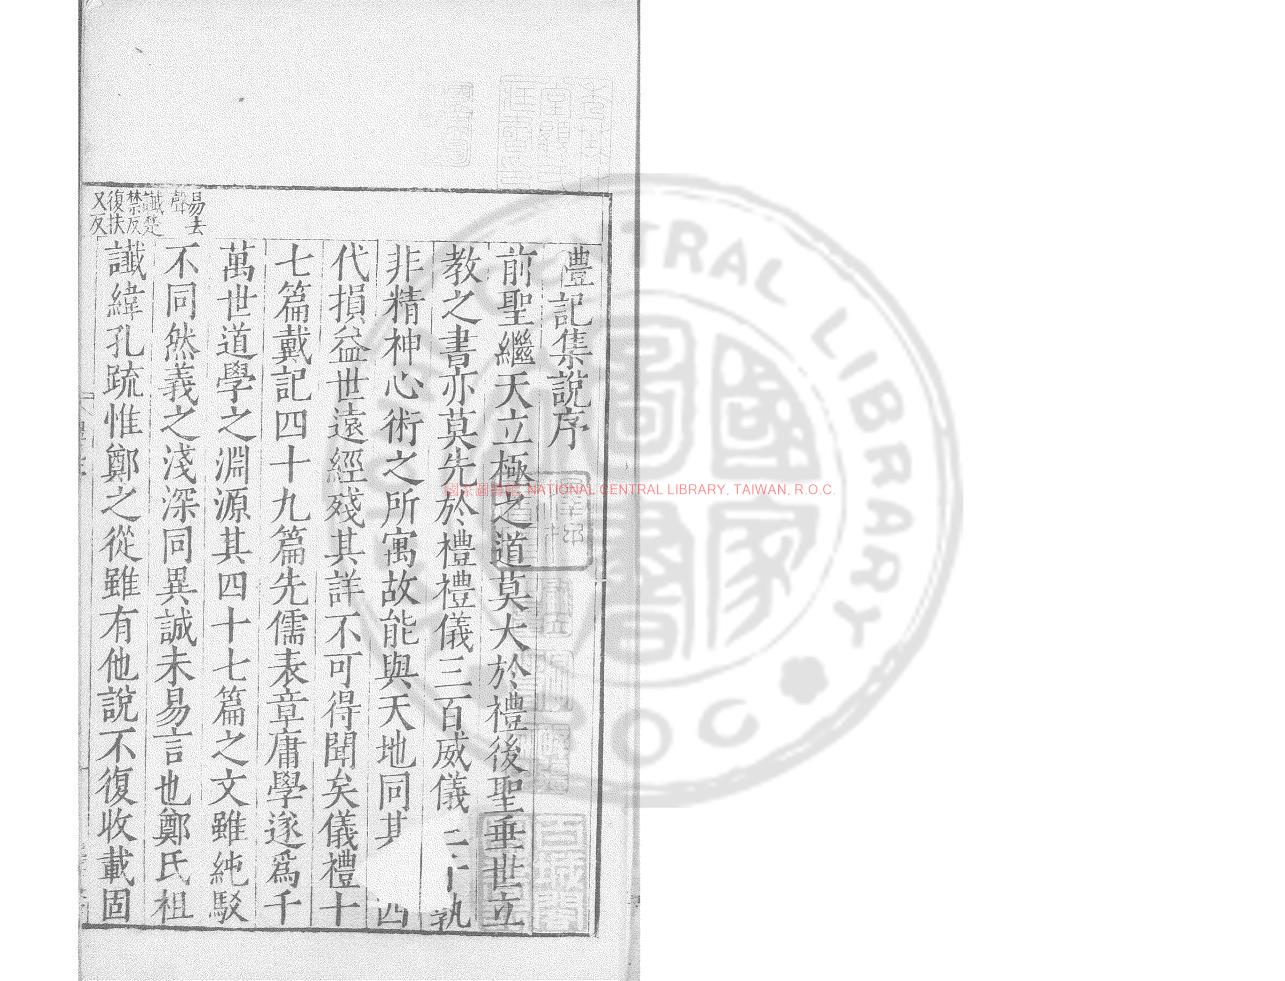 禮記集說序
前聖繼天立極之道莫大於禮後聖垂世立
教之書亦莫先於禮禮儀三百威儀三千孰
非精神心術之所寓故能與天地同其
代損益世遠經殘其詳不可得聞矣儀禮十
七篇戴記四十九篇先儒表章庸學遂爲千
萬世道學之淵源其四十七篇之文雖純駁
不同然義之淺深同異誠未易言也鄭氏祖
讖緯孔疏惟鄭之從雖有他說不復收載固
易去聲
讖楚禁反
復扶又反
國家圖書館 NATIONAL CENTRAL LIBRARY, TAIWAN, R.O.C.
CENTRAL LIBRARY
ROC
國家圖書